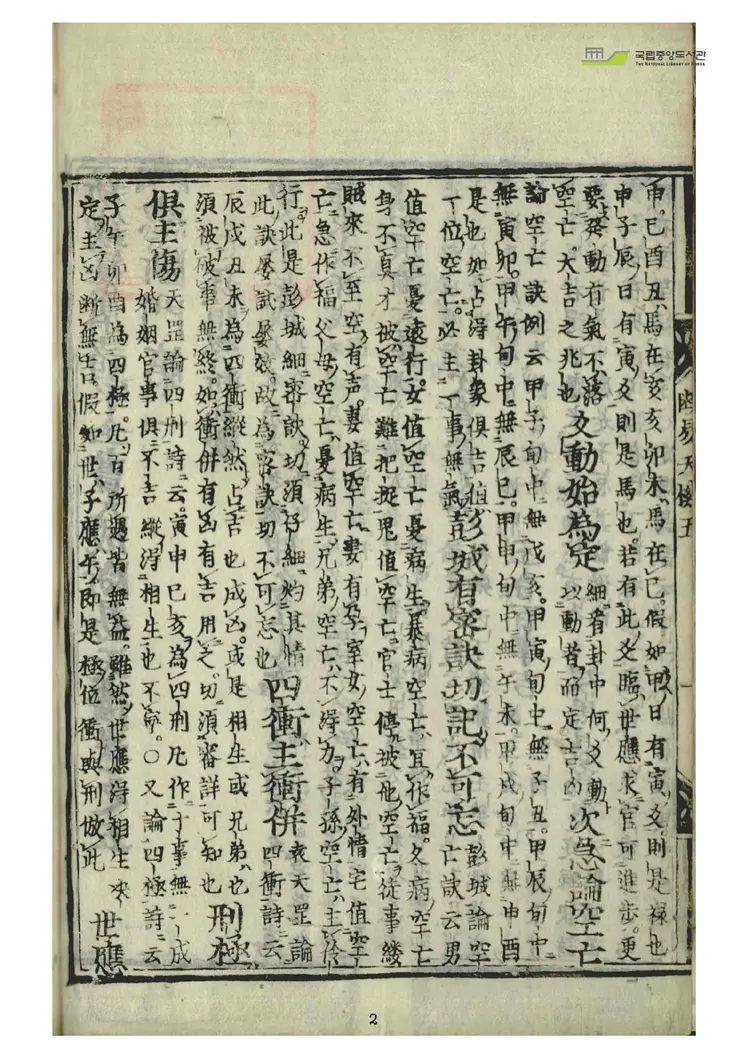 断易天機五
申。巳酉丑、馬在亥亥卯未、馬在巳。假如甲日有寅爻則是禄也
申子辰日有寅爻則是馬也。若有此爻臨世應求官可進步。更
要發動有氣不落
空亡。大吉之兆也
爻動始為定
細看卦中何爻動
以動者而定吉凶
次急論空亡
論空亡訣例云甲子旬中無戌亥。甲寅旬中無子丑。甲辰旬中
無寅卯。甲午旬中無辰巳。甲申旬中無午未。甲戌旬中無申酉
是也如占得卦象俱吉值
一位空亡。必主一事無氣
彭城有密訣切記不可忘
彭城論空
亡訣云男
值空亡憂遠行。女值空亡憂病生。暴病空亡宜作福。久病空亡
身不真才被空亡難把捉鬼值空亡官士停被他空亡從事縷
賊來不至空有声。妻值空亡妻有孕室女空亡有外情宅值空
亡急作福父母空亡憂病生。兄弟空亡不得力。子孫空亡主伶
行。此是彭城細密訣切須仔細灼其情
此訣屡試屡驗。故為密訣切不可忘也
四衝主衝併
袁天罡論
四衝詩云
辰戌丑未為四衝縱然占吉也成凶。或是相生或兄弟也
須被破事無終。如衝併有凶有吉用之。切須審詳可知也
刑極
俱主傷
天罡論四刑詩云。寅申巳亥為四刑凡作于事無一成
婚姻官事俱不吉縱得相生也不寧。○又論四極詩云
子午卯酉為四極。凡百所遇皆無益。雖然世應得相生來
定主凶断無吉假如世子應午即是極位衝與刑倣此
世應
국립중앙도서관
THE NATIONAL LIBRARY OF KOREA
2